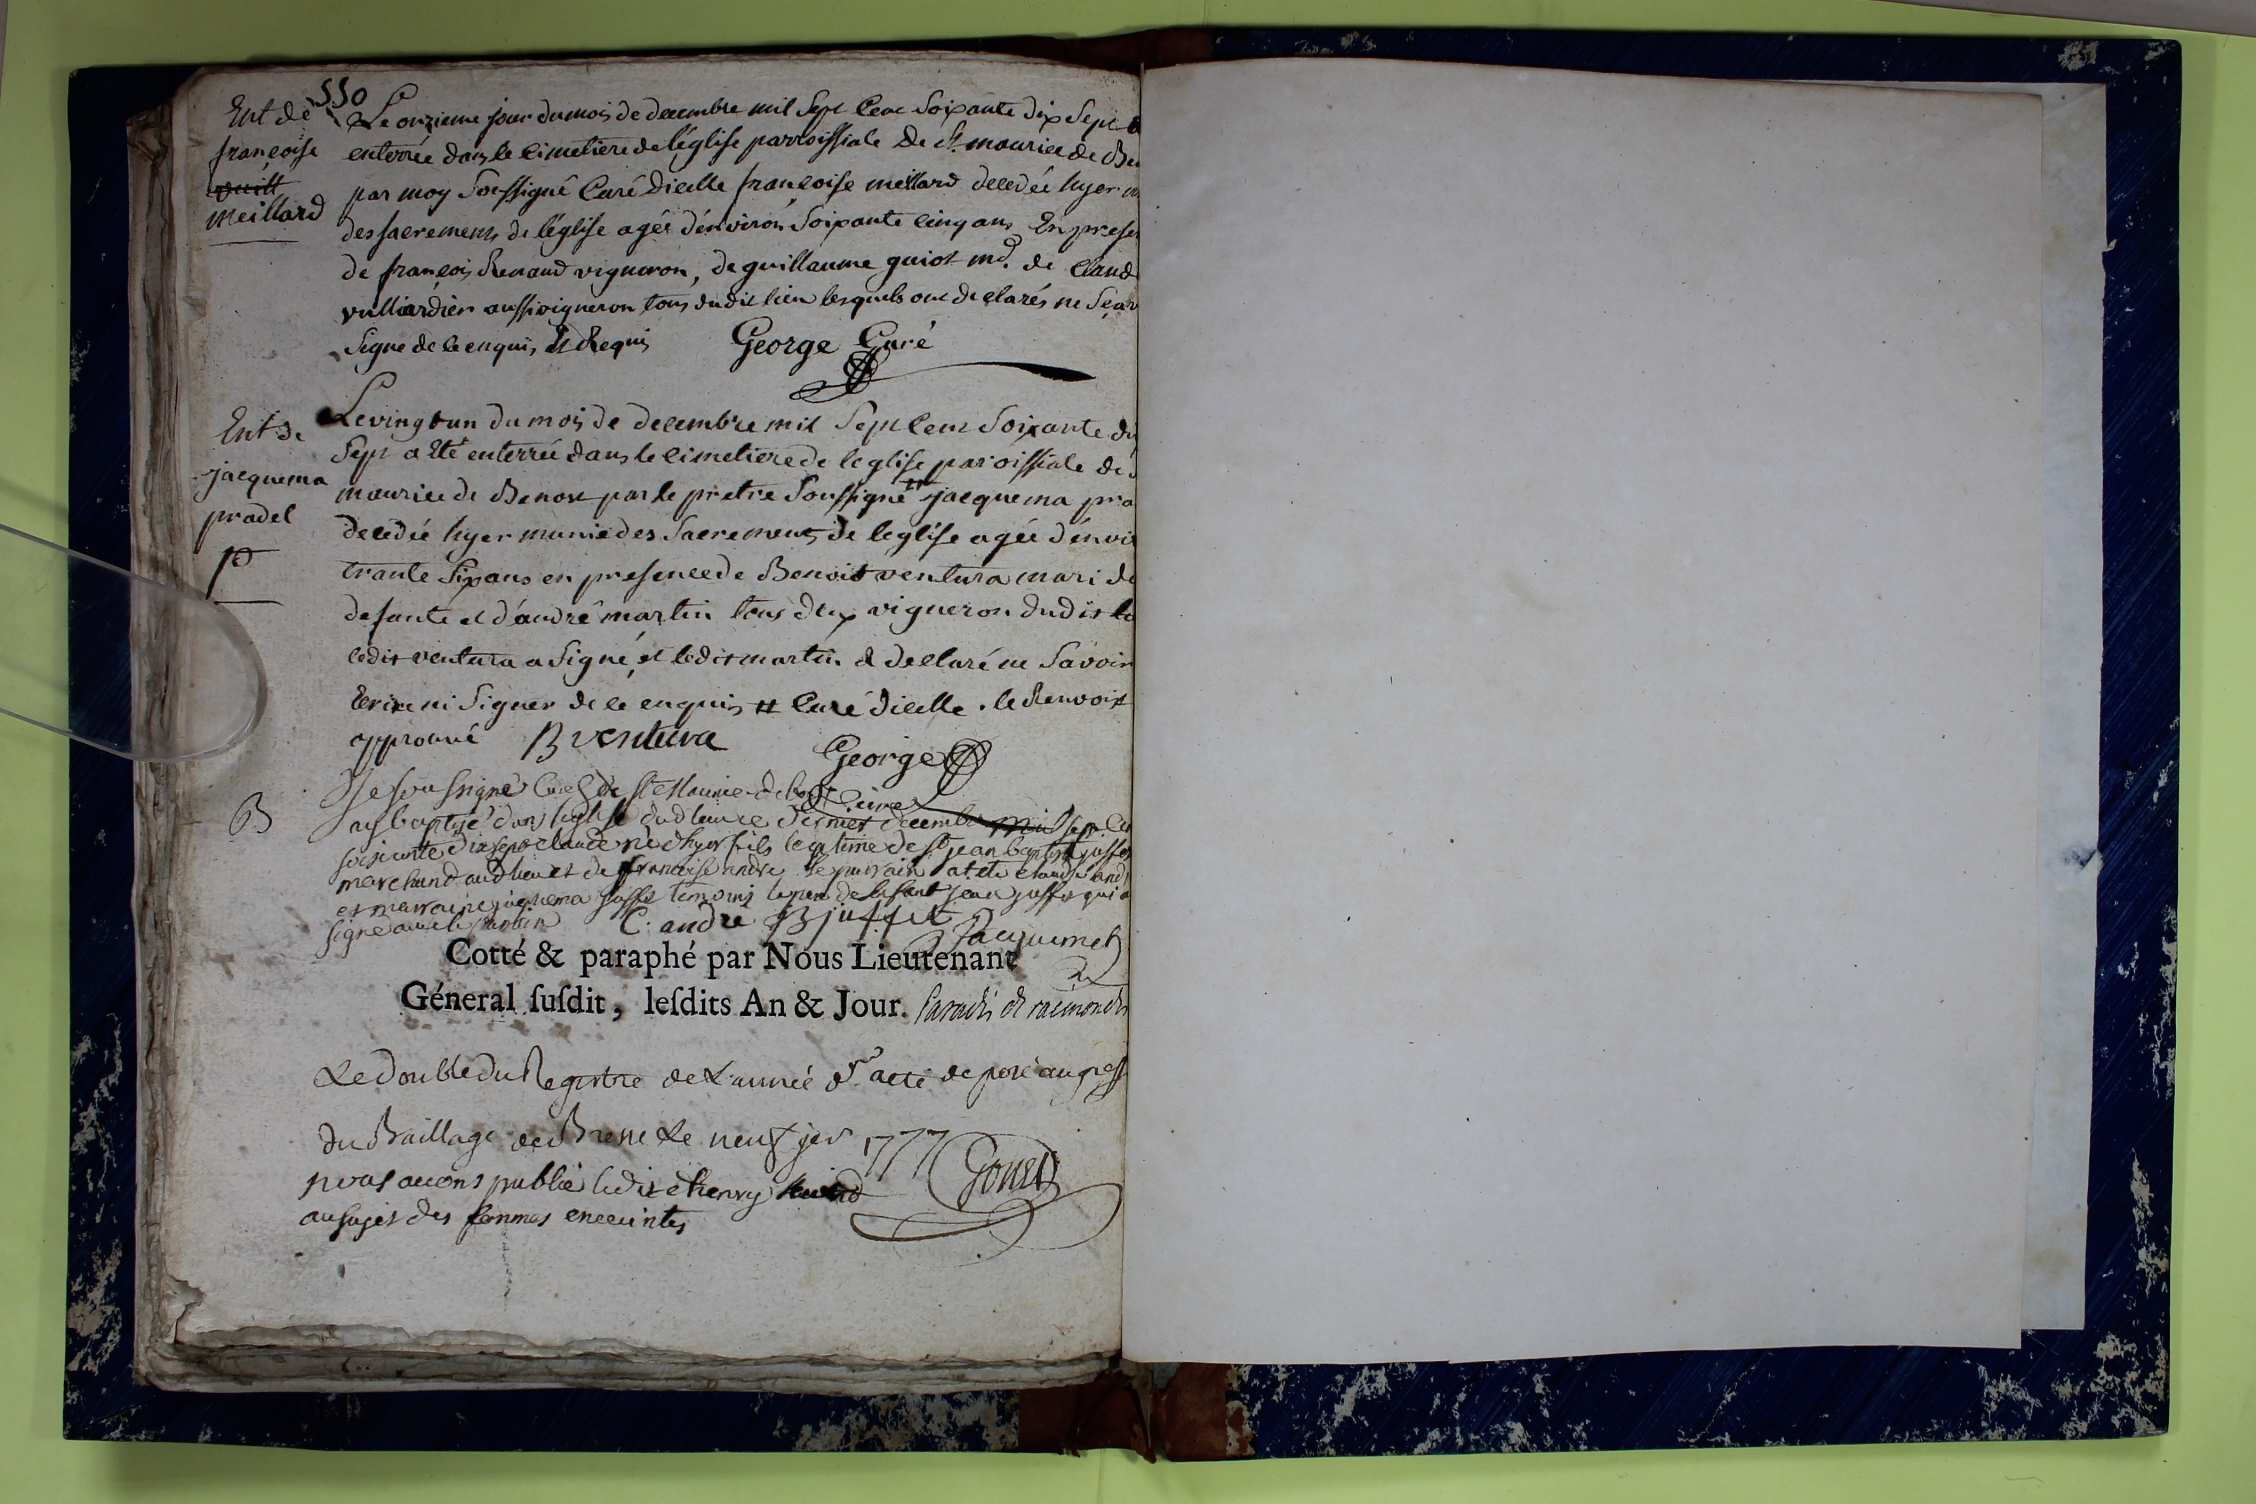 550
Ent de
françoise
vuill
meillard
Le onzieme jour du mois de decembre mil Sept Cent Soixante dix Sept a
enterrée dans le cimetiere de l'église parroissiale de St. maurice de Be
par moy Soussigné Curé dicelle françoise meillard decedée hyer
des sacremens de l'église agée d'environ Soixante cinq ans En presen
de françois Renaud vigneron, de guillaume guiot md. de Claud
vulliardier aussi vigneron tous dudit lieu lesquels ont declarés ne Sçav
Signe de ce enquis Et Requis George Curé
Ent de
jacquema
pradel
P
Le vingt un du mois de decembre mil Sept Cent Soixante dix
Sept a Eté enterrée dans le cimetiere de leglise paroissiale de S
maurice de Benost par le pretre Soussigné # jacquema pra
decedée hyer munie des Sacremens de leglise agée d'envir
trante Six ans en presence de Benoit ventura mari de
defunte et d'andré martin tous deux vigneron dudit lieu
ledit ventura a Signé, et ledit martin a declaré ne Savoir
Ecrire ni Signer de ce enquis # Curé dicelle . le Renvoit
approuvé B ventura George
Curé
B
Je soussigné Curé de St Maurice de
ay baptisé dans leglise dud lieu ce decembre mil sept Cen
soixante dix sept claude né d'hyer fils legitime de Sr jean baptiste juffet
marchand aud lieu et de francoise andre le parrain a été claude and
et marraine jaquema juffet temoins le pere de lefant jean juffet qui a
signé avec le parrin C. andre JB juffet
Jacquemet
Cotté & paraphé par Nous Lieutenant
Géneral ſuſdit, leſdits An & Jour.
Le double du Registre de L'année dr. a eté deposé au greff
du Baillage de Bresse Le neuf jer 1777 Gouet
nous avons publié ledit d henry
au sujet des femmes enceintes